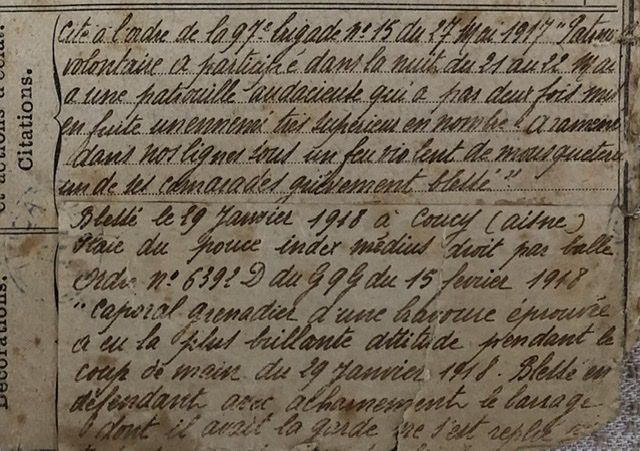 et actions d'éclat.
Citations.
Décorations.
Cité à l'ordre de la 97e brigade no 15 du 27 Mai 1917 "Patrou
volontaire a participé dans la nuit du 21 au 22 Mai
a une patrouille audacieuse qui a par deux fois mis
en fuite un ennemi très supérieur en nombre. a ramené
dans nos lignes sous un feu violent de mousqueterie
un de ses camarades grièvement blessé"
Blessé le 29 Janvier 1918 à Coucy (aisne)
Plaie du pouce index médius droit par balle
Ordre no 6392 D du GQG du 15 fevrier 1918
"Caporal grenadier d'une bravoure éprouvée
a eu la plus brillante attitude pendant le
coup de main du 29 Janvier 1918. Blessé en
défendant avec acharnement le barrage
dont il avait la garde ne s'est replié